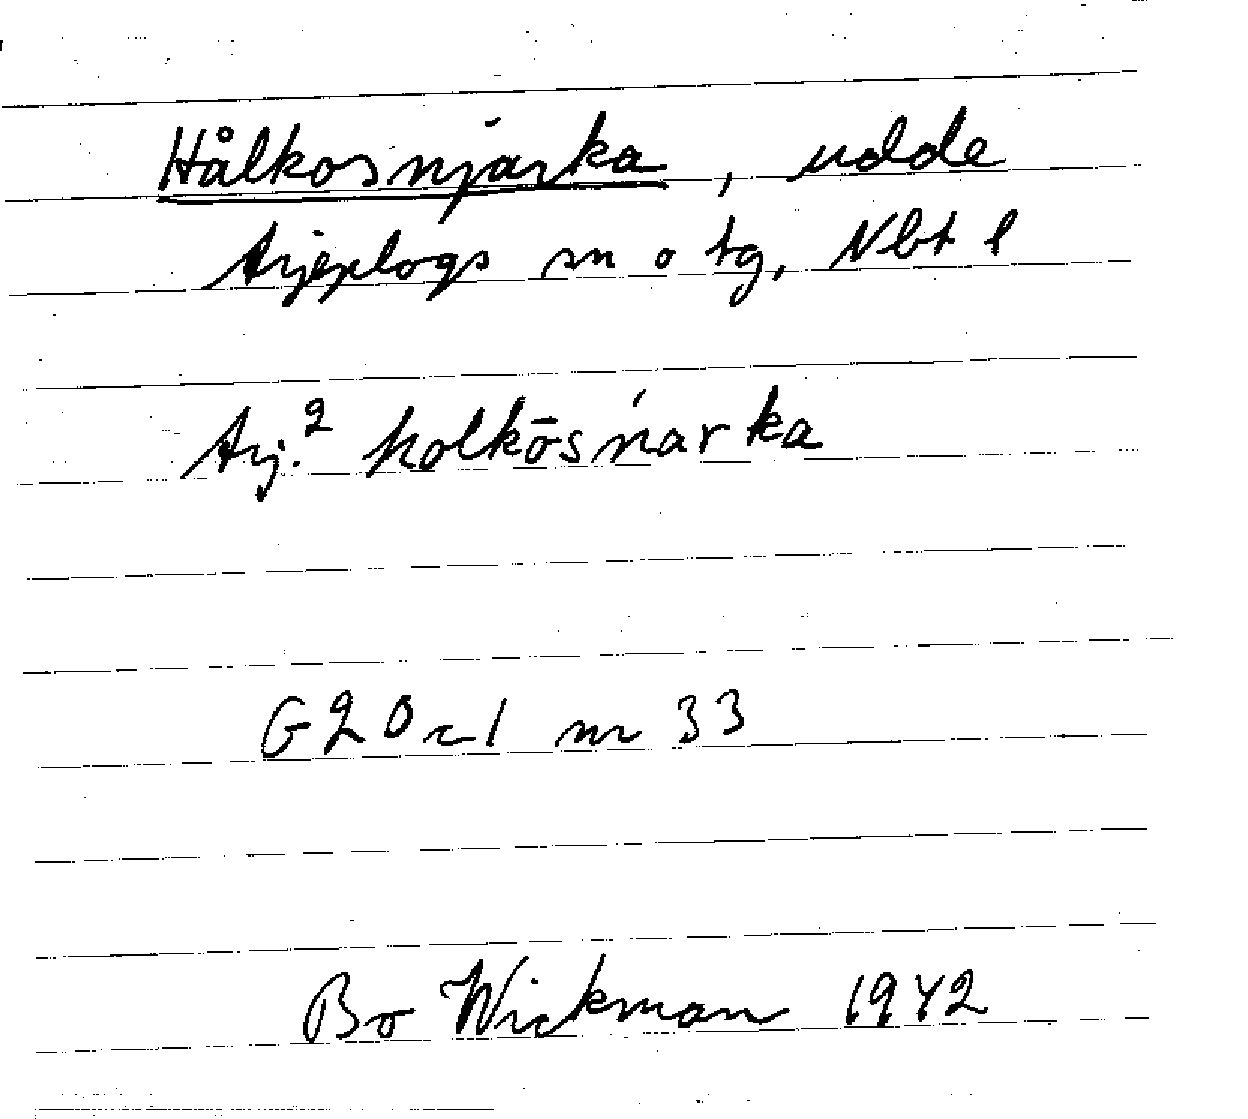 Hålkosnjárka, udde
Arjeplogs sn o tg, Nbt l
Arj.² holkōsńarka
G20c1 nr 33
Bo Wickman 1942